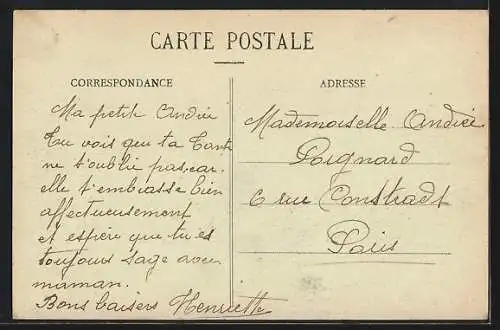 CARTE POSTALE
CORRESPONDANCE
Ma petite Andrée
Tu vois que ta Tante
ne t'oublie pas, car
elle t'embrasse bien
affectueusement
et espère que tu es
toujours sage avec
maman.
Bons baisers Henriette
ADRESSE
Mademoiselle Andrée
Poignard
6 rue
Paris